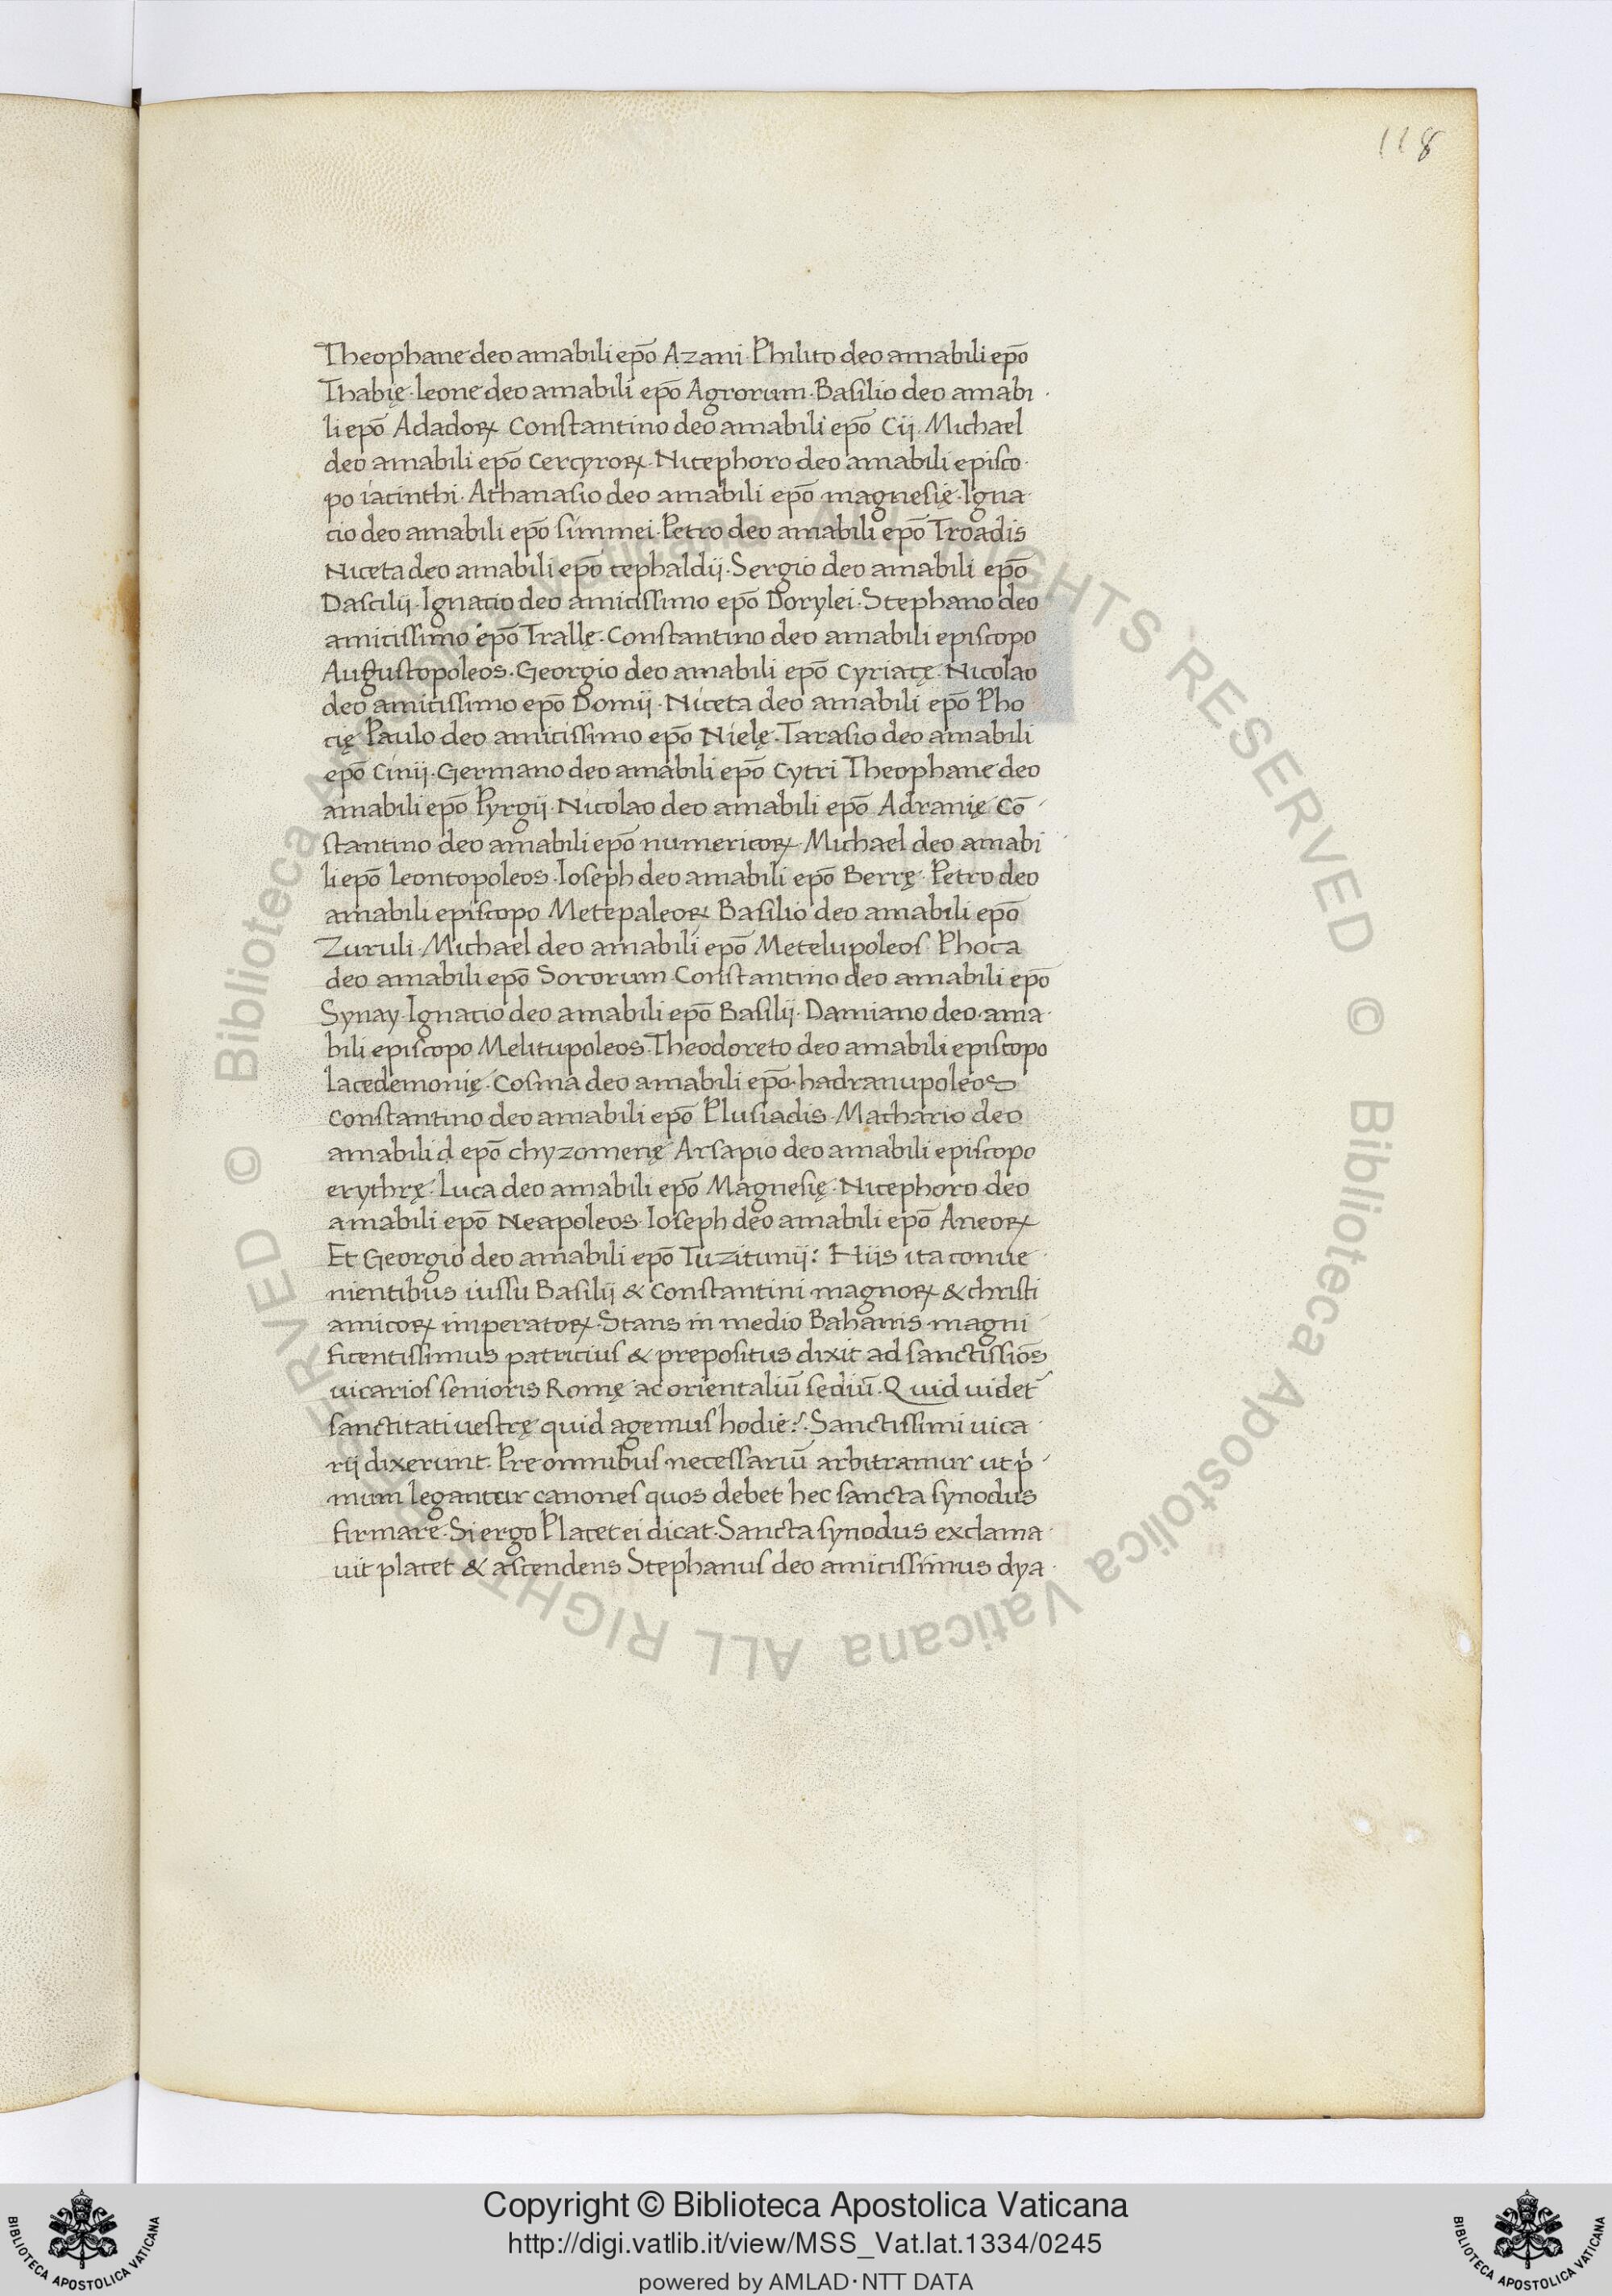 118
Theophane deo amabili ep̅o Azani. Philito deo amabili ep̅o
Thabię. leone deo amabili ep̅o Agrorum. Basilio deo amabi
li ep̅o Adadoꝝ Constantino deo amabili ep̅o Cij. Michael
deo amabili ep̅o cercyroꝝ. Nicephoro deo amabili episco
po iacinthi. Athanasio deo amabili ep̅o magnesię. Igna
cio deo amabili ep̅o simmei. Petro deo amabili ep̅o Troadis
Niceta deo amabili ep̅o cephaldij. Sergio deo amabili ep̅o
Dascilij. Ignacio deo amicissimo ep̅o Dorylei. Stephano deo
amicissimo ep̅o Trallę. Constantino deo amabili episcopo
Augustopoleos. Georgio deo amabili ep̅o cyriacę. Nicolao
deo amicissimo ep̅o Domij. Niceta deo amabili ep̅o Pho
cię Paulo deo amicissimo ep̅o Nielę. Tarasio deo amabili
ep̅o Cinij. Germano deo amabili ep̅o cytri Theophane deo
amabili ep̅o Pyrgij. Nicolao deo amabili ep̅o Adranię Co̅
stantino deo amabili ep̅o numericoꝝ. Michael deo amabi
li ep̅o leontopoleos. Ioseph deo amabili ep̅o Berrę. Petro deo
amabili episcopo Metepaleoꝝ Basilio deo amabili ep̅o
Zuruli. Michael deo amabili ep̅o Metelupoleos. Phoca
deo amabili ep̅o Sororum Constantino deo amabili ep̅o
Synay. Ignacio deo amabili ep̅o Basilij. Damiano deo ama
bili episcopo Melitupoleos. Theodoreto deo amabili episcopo
lacedemonię. Cosma deo amabili ep̅o hadranupoleos
Constantino deo amabili ep̅o Plusiadis. Machario deo
amabili d ep̅o chyzomenę Arsapio deo amabili episcopo
erythrę. Luca deo amabili ep̅o Magnesię. Nicephoro deo
amabili ep̅o Neapoleos. Ioseph deo amabili ep̅o Aneoꝝ
Et Georgio deo amabili ep̅o Tuzitunij: Hiis ita conue
nientibus iussu Basilij & Constantini magnoꝝ & christi
amicoꝝ imperatoꝝ. Stans in medio Bahanis magni
ficentissimus patricius & prepositus dixit ad sanctissio̅s
uicarios senioris Romę ac orientaliu̅ sediu̅. Quid uidet̅
sanctitati uestrę quid agemus hodie?. Sanctissimi uica
rij dixerunt. Pre omnibus necessariu̅ arbitramur ut pͥ
mum legantur canones quos debet hec sancta synodus
firmare. Si ergo Placet ei dicat. Sancta synodus exclama
uit placet & ascendens Stephanus deo amicissimus dya
© Biblioteca Apostolica Vaticana ALL RIGHTS RESERVED © Biblioteca Apostolica Vaticana ALL RIGHTS RESERVED
Copyright © Biblioteca Apostolica Vaticana
http://digi.vatlib.it/view/MSS_Vat.lat.1334/0245
powered by AMLAD·NTT DATA
BIBLIOTECA APOSTOLICA VATICANA
BIBLIOTECA APOSTOLICA VATICANA